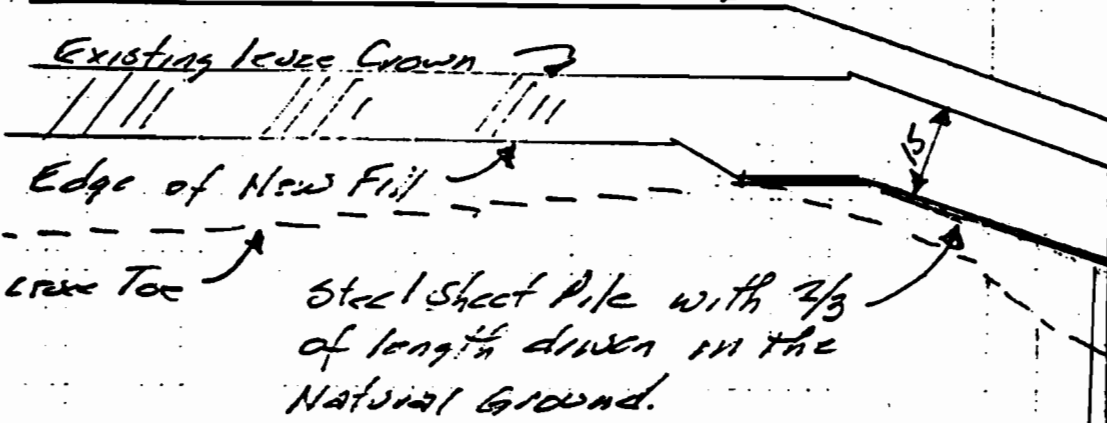 Existing levee Crown
15
Edge of New Fill
Levee Toe
Steel Sheet Pile with 2/3
of length driven in the
Natural Ground.